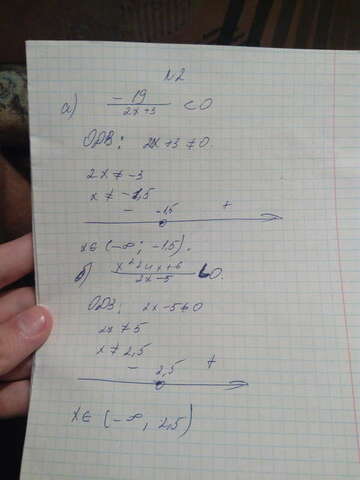 N2
а) -19/2x+3 <0
ОДЗ: 2x+3≠0.
2x≠-3
x≠-1,5
- -1,5 +
x∈(-∞; -1,5).
б) x²+4x+6/2x-5 <0.
ОДЗ: 2x-5≠0
2x≠5
x≠2,5
- 2,5 +
x∈(-∞; 2,5)